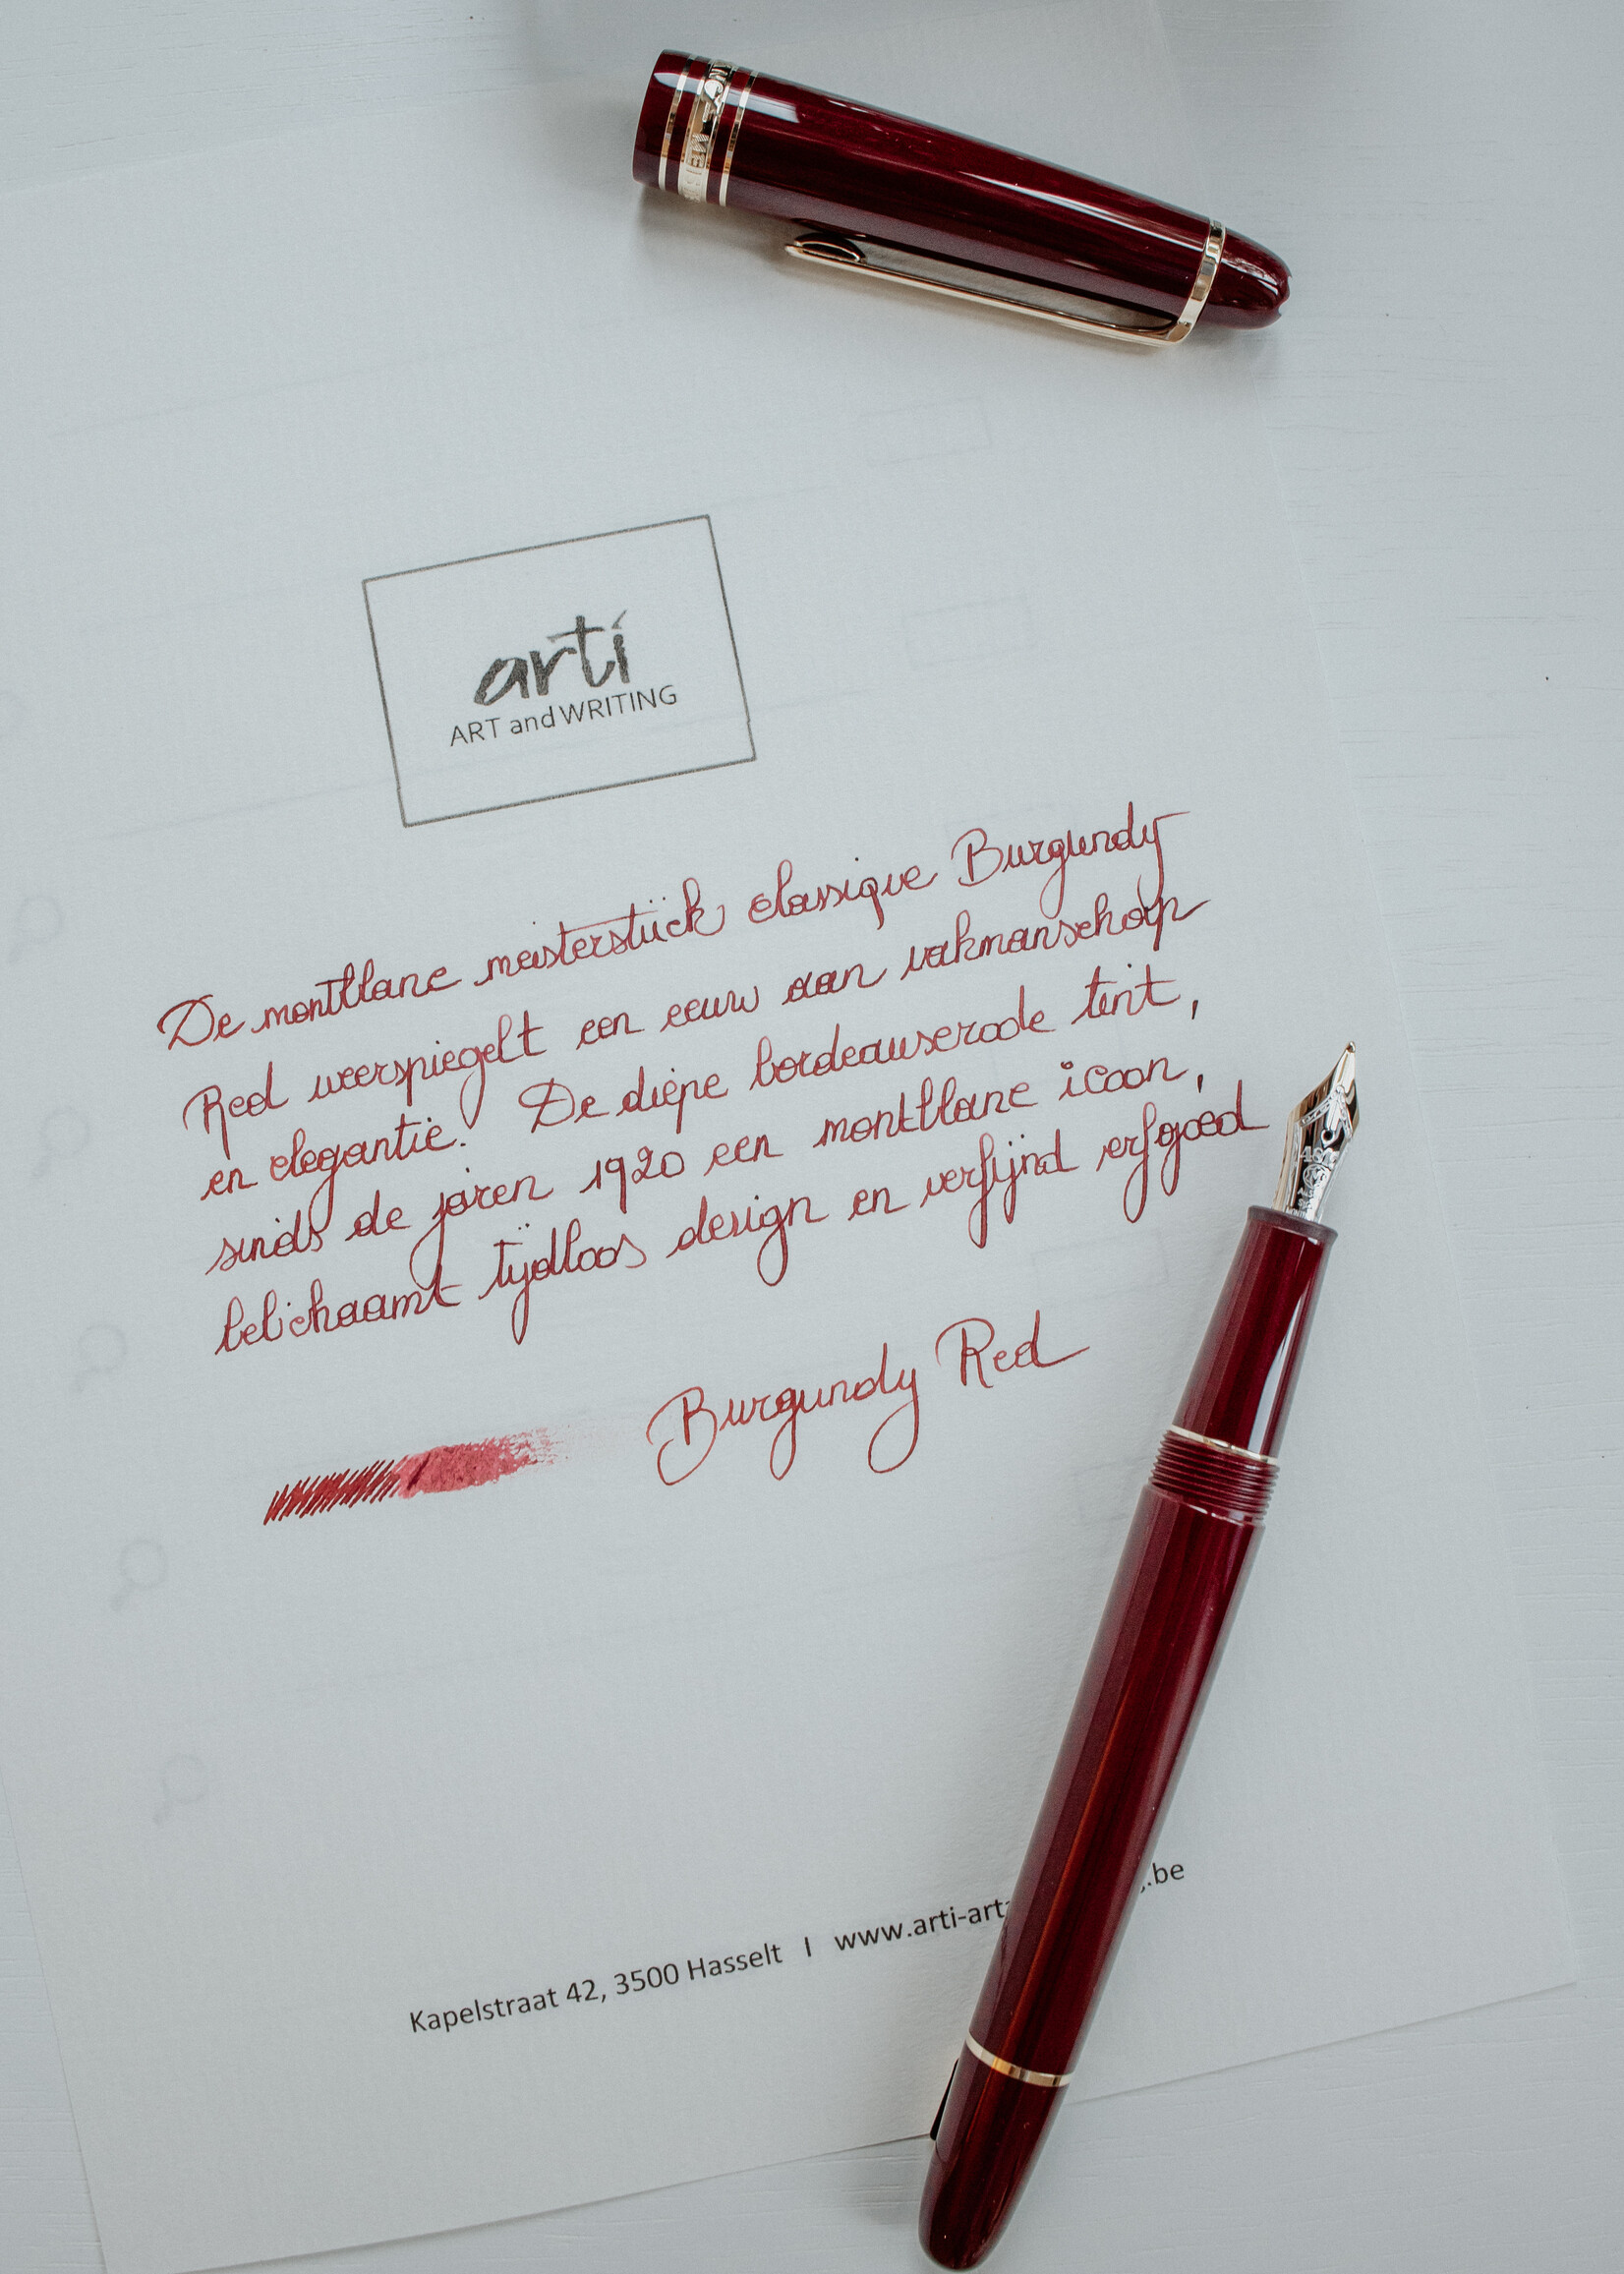 arti
ART and WRITING
De montblanc meisterstück classique Burgundy
Red weerspiegelt een eeuw aan vakmanschap
en elegantie. De diepe bordeauxerode tint,
sinds de jaren 1920 een montblanc icoon,
belichaamt tijdloos design en verfijnd erfgoed
Burgundy Red
Kapelstraat 42, 3500 Hasselt I www.arti-art- .be